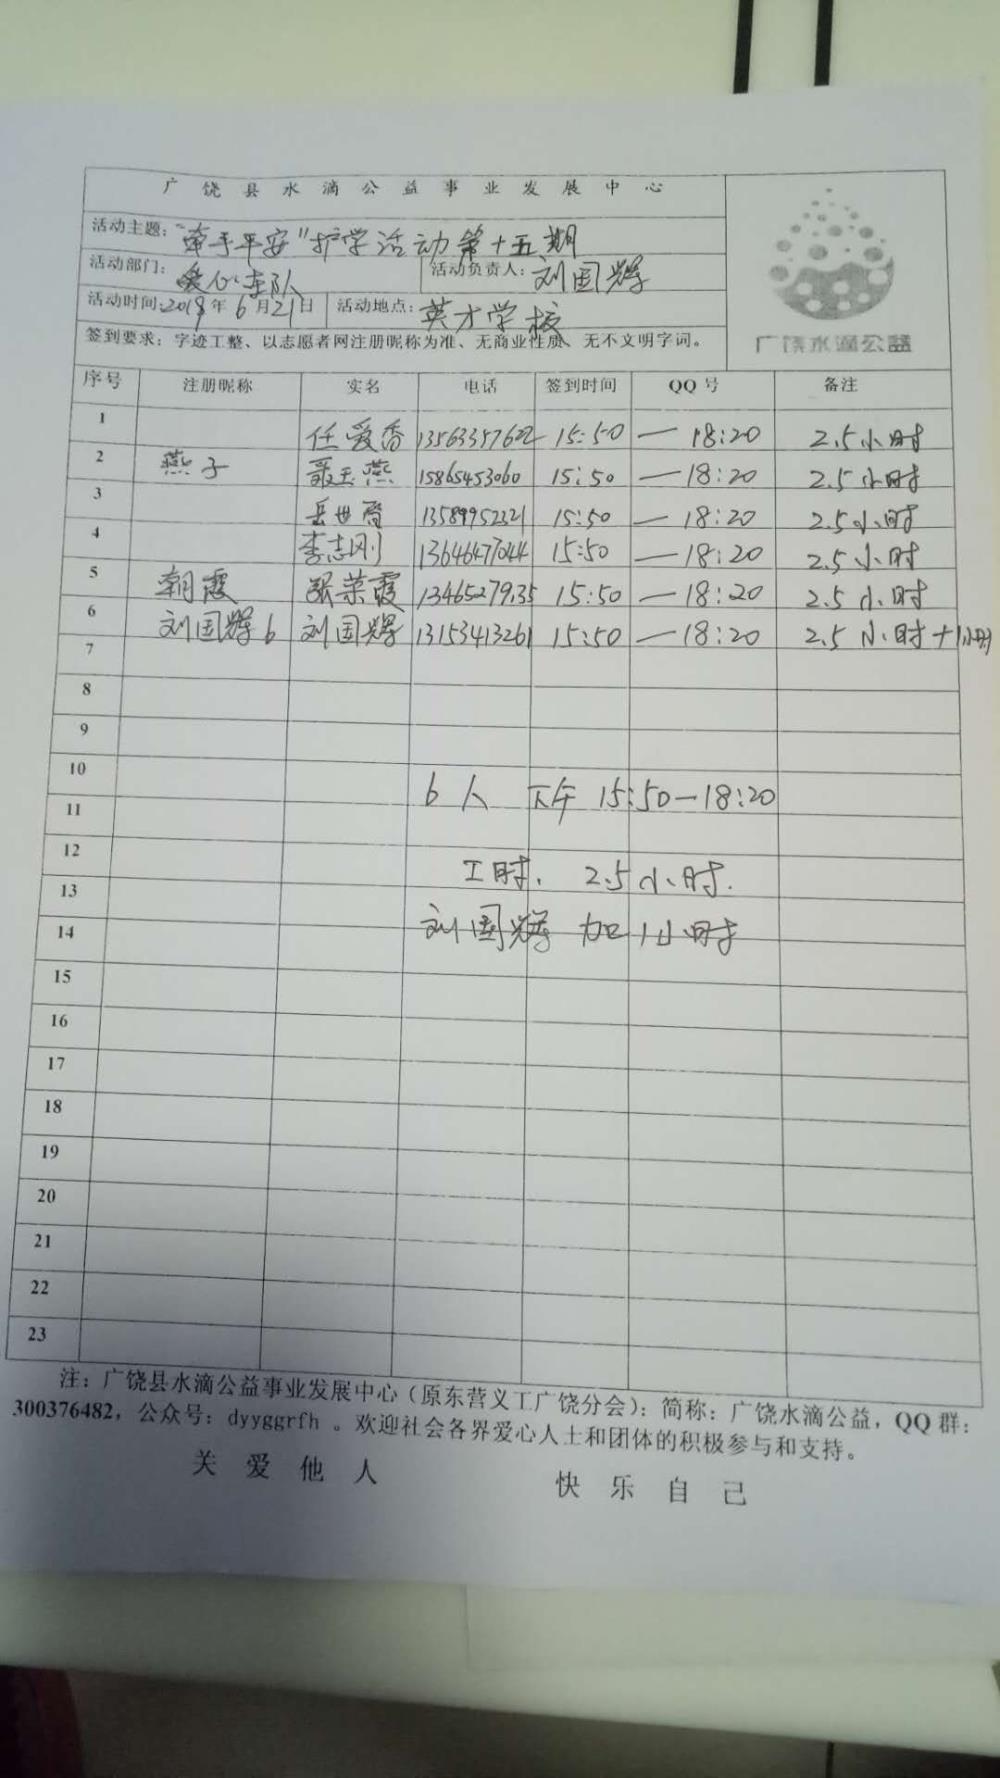 广饶县水滴公益事业发展中心
活动主题："牵手平安"护学活动第十五期
活动部门：爱心车队 活动负责人：刘国辉
活动时间：2019年6月21日 活动地点：英才学校
签到要求：字迹工整、以志愿者网注册昵称为准、无商业性质、无不文明字词。
广饶水滴公益
序号 注册昵称 实名 电话 签到时间 QQ号 备注
1 任爱香 13563357622 15:50 — 18:20 2.5小时
2 燕子 聂玉燕 15865453060 15:50 — 18:20 2.5小时
3 岳世 13589952321 15:50 — 18:20 2.5小时
4 李志刚 13646477044 15:50 — 18:20 2.5小时
5 朝霞 张荣霞 15:50 — 18:20 2.5小时
6 刘国辉6 刘国辉 13153413261 15:50 — 18:20 2.5小时+1小时
7
8
9
10 6人 下午 15:50—18:20
11
12 工时. 2.5小时.
13
14 刘国辉 加1小时
15
16
17
18
19
20
21
22
23
注：广饶县水滴公益事业发展中心（原东营义工广饶分会）；简称：广饶水滴公益，QQ群：
300376482，公众号：dyyggrfh 。欢迎社会各界爱心人士和团体的积极参与和支持。
关爱他人 快乐自己